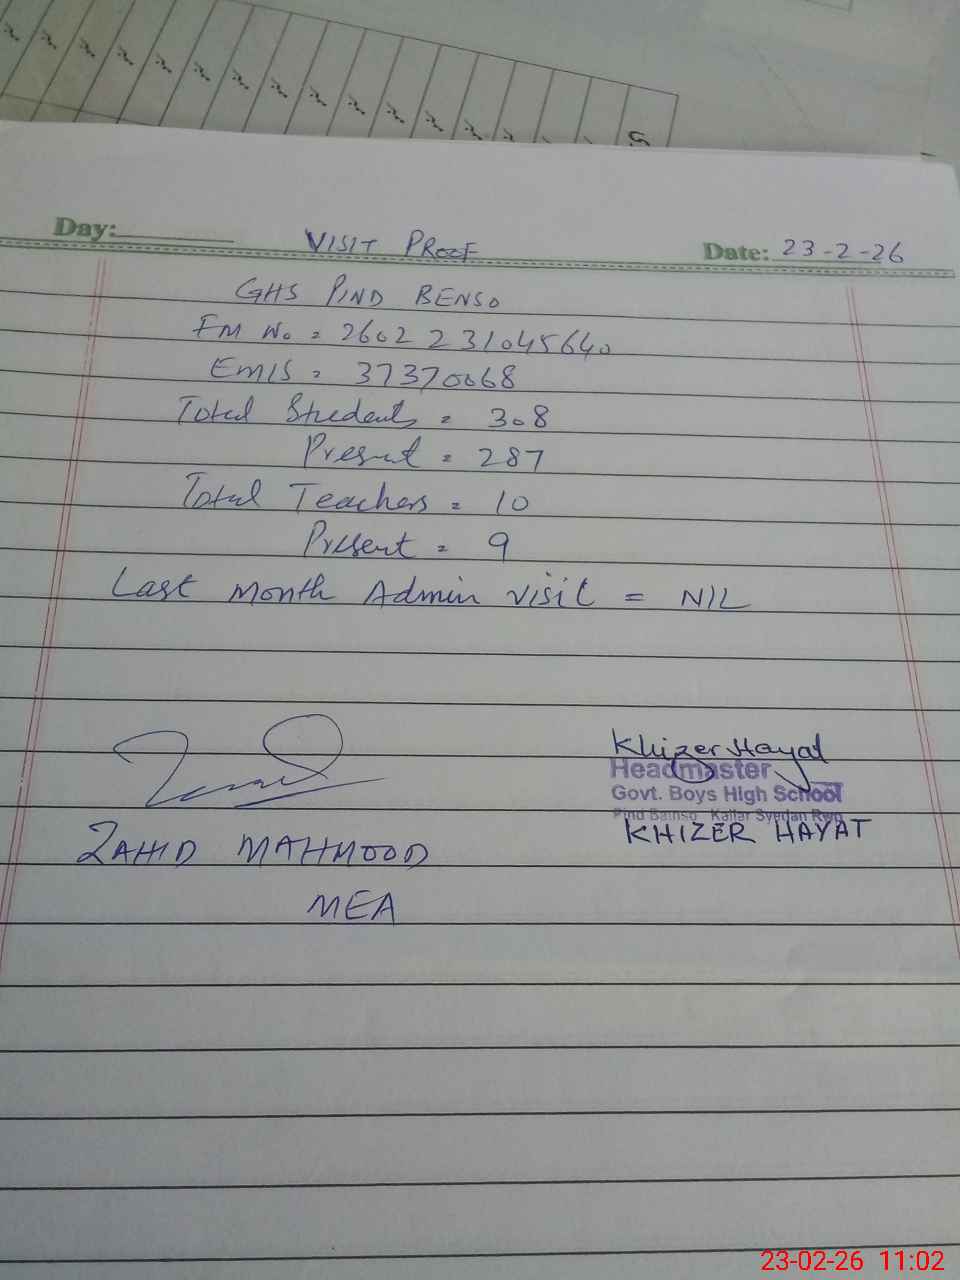 Day:
VISIT PROOF
Date: 23-2-26
GHS PIND BENSO
FM No = 2602 2 31045640
EMIS = 37370068
Total Students = 308
Present = 287
Total Teachers = 10
Present = 9
Last Month Admin visit = NIL
Khizer Hayat
Headmaster
Govt. Boys High School
Pind Bainso Kallar Syedan Rwp
KHIZER HAYAT
ZAHID MAHMOOD
MEA
23-02-26 11:02